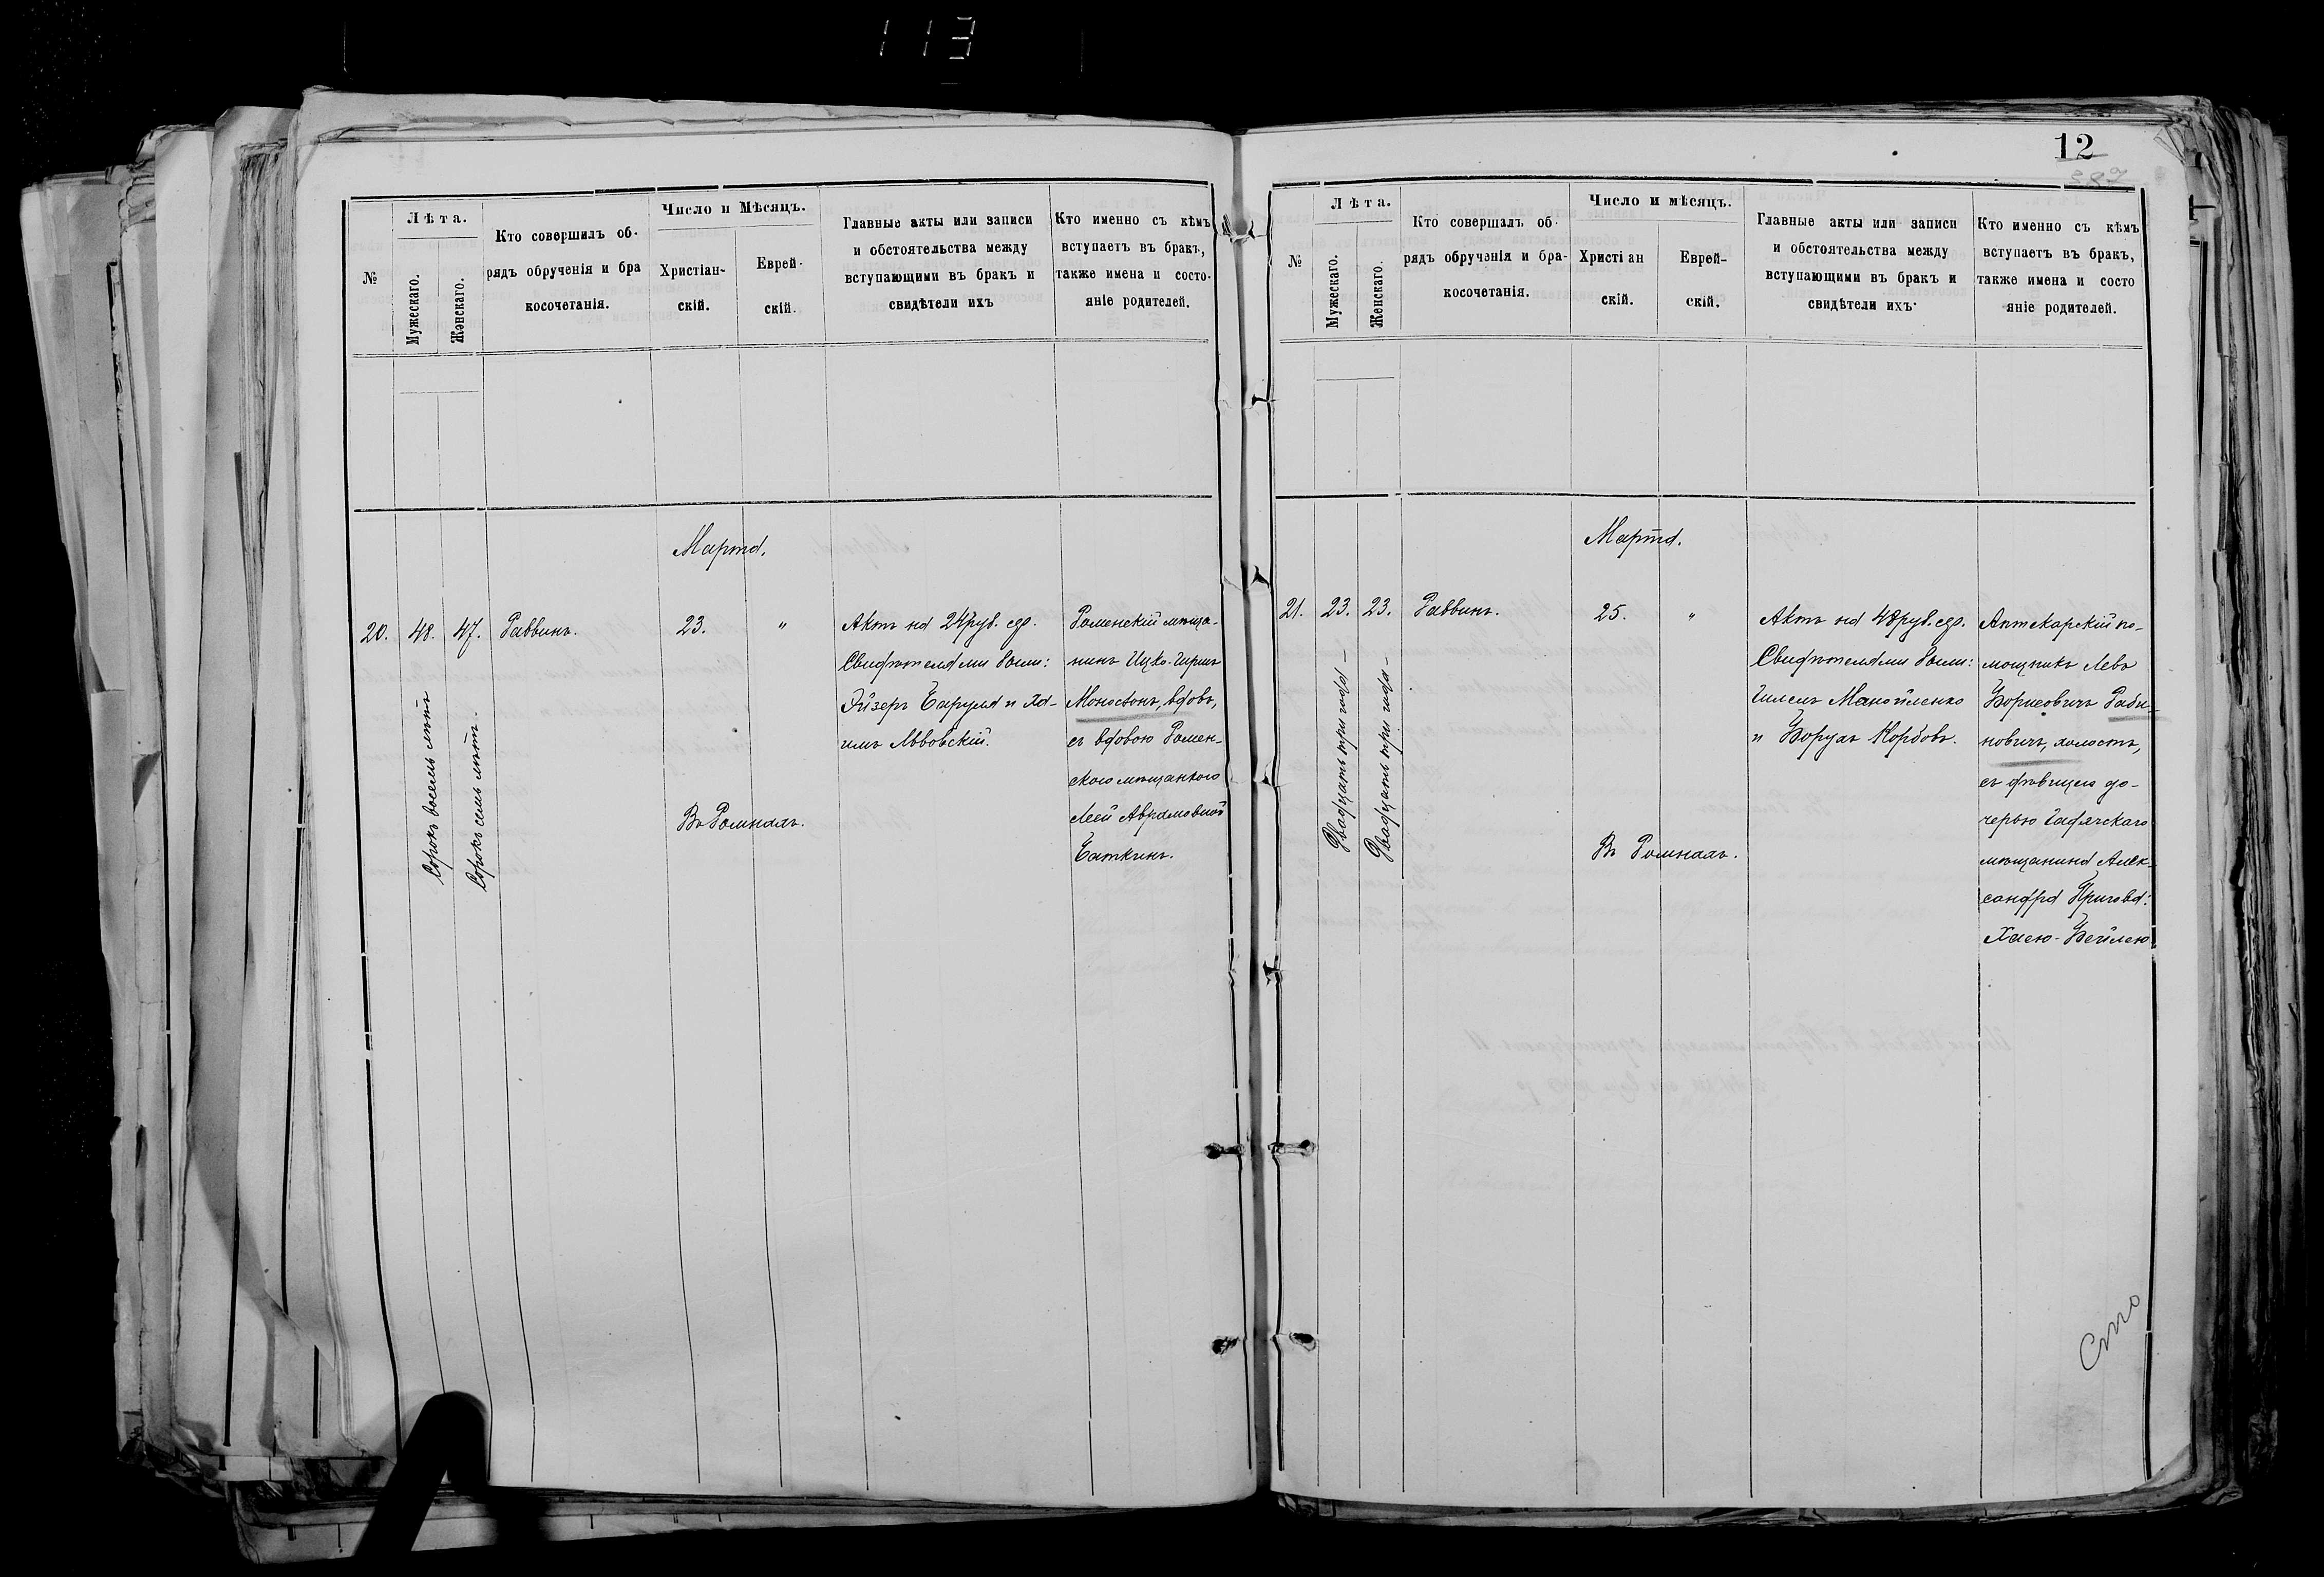 113
№
Лѣта.
Мужескаго.
Женскаго.
Кто совершилъ об-
рядъ обрученія и бра
косочетанія.
Число и Мѣсяцъ.
Христіан-
скій.
Еврей-
скій.
Главные акты или записи
и обстоятельства между
вступающими въ бракъ и
свидѣтели ихъ
Кто именно съ кѣмъ
вступаетъ въ бракъ,
также имена и состо-
яніе родителей.
Марта.
20.
48.
Сорокъ восемь лѣтъ
47.
Сорокъ семь лѣтъ.
Раввинъ.
23.
"
Въ Ромнахъ.
Актъ на 24 руб. сер.
Свидѣтелями были:
Эйзеръ Баруля и Ха-
имъ Львовскій.
Роменскій мѣща-
нинъ Ицко-Гиршъ
Моносзонъ, вдовъ,
съ вдовою Ромен-
скою мѣщанкою
Леей Аврамовной
Баткинъ.
12
387
№
Лѣта.
Мужескаго.
Женскаго.
Кто совершалъ об
рядъ обрученія и бра-
косочетанія.
Число и мѣсяцъ.
Христіан
скій.
Еврей-
скій.
Главные акты или записи
и обстоятельства между
вступающими въ бракъ и
свидѣтели ихъ
Кто именно съ кѣмъ
вступаетъ въ бракъ,
также имена и состо
яніе родителей.
Марта.
21.
23.
Двадцать три года —
23.
Двадцать три года —
Раввинъ.
25.
"
Въ Ромнахъ.
Актъ на 48 руб. сер.
Свидѣтелями были:
Гилель Манойленко
и Борухъ Корбовъ.
Аптекарскій по-
мощникъ Левъ
Борисовичъ Раби-
новичъ, холостъ,
съ дѣвицею до-
черью Гадячскаго
мѣщанина Алек-
сандра Пригова:
Хаею-Бейлею
Сто